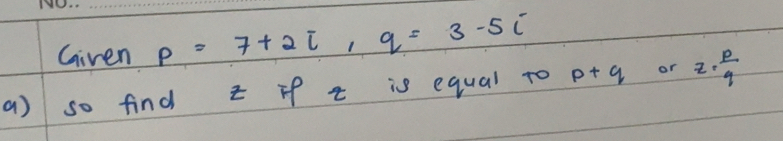 No..
Given p = 7+2i , q = 3-5i
a) so find z if z is equal to p+q or z. p/q